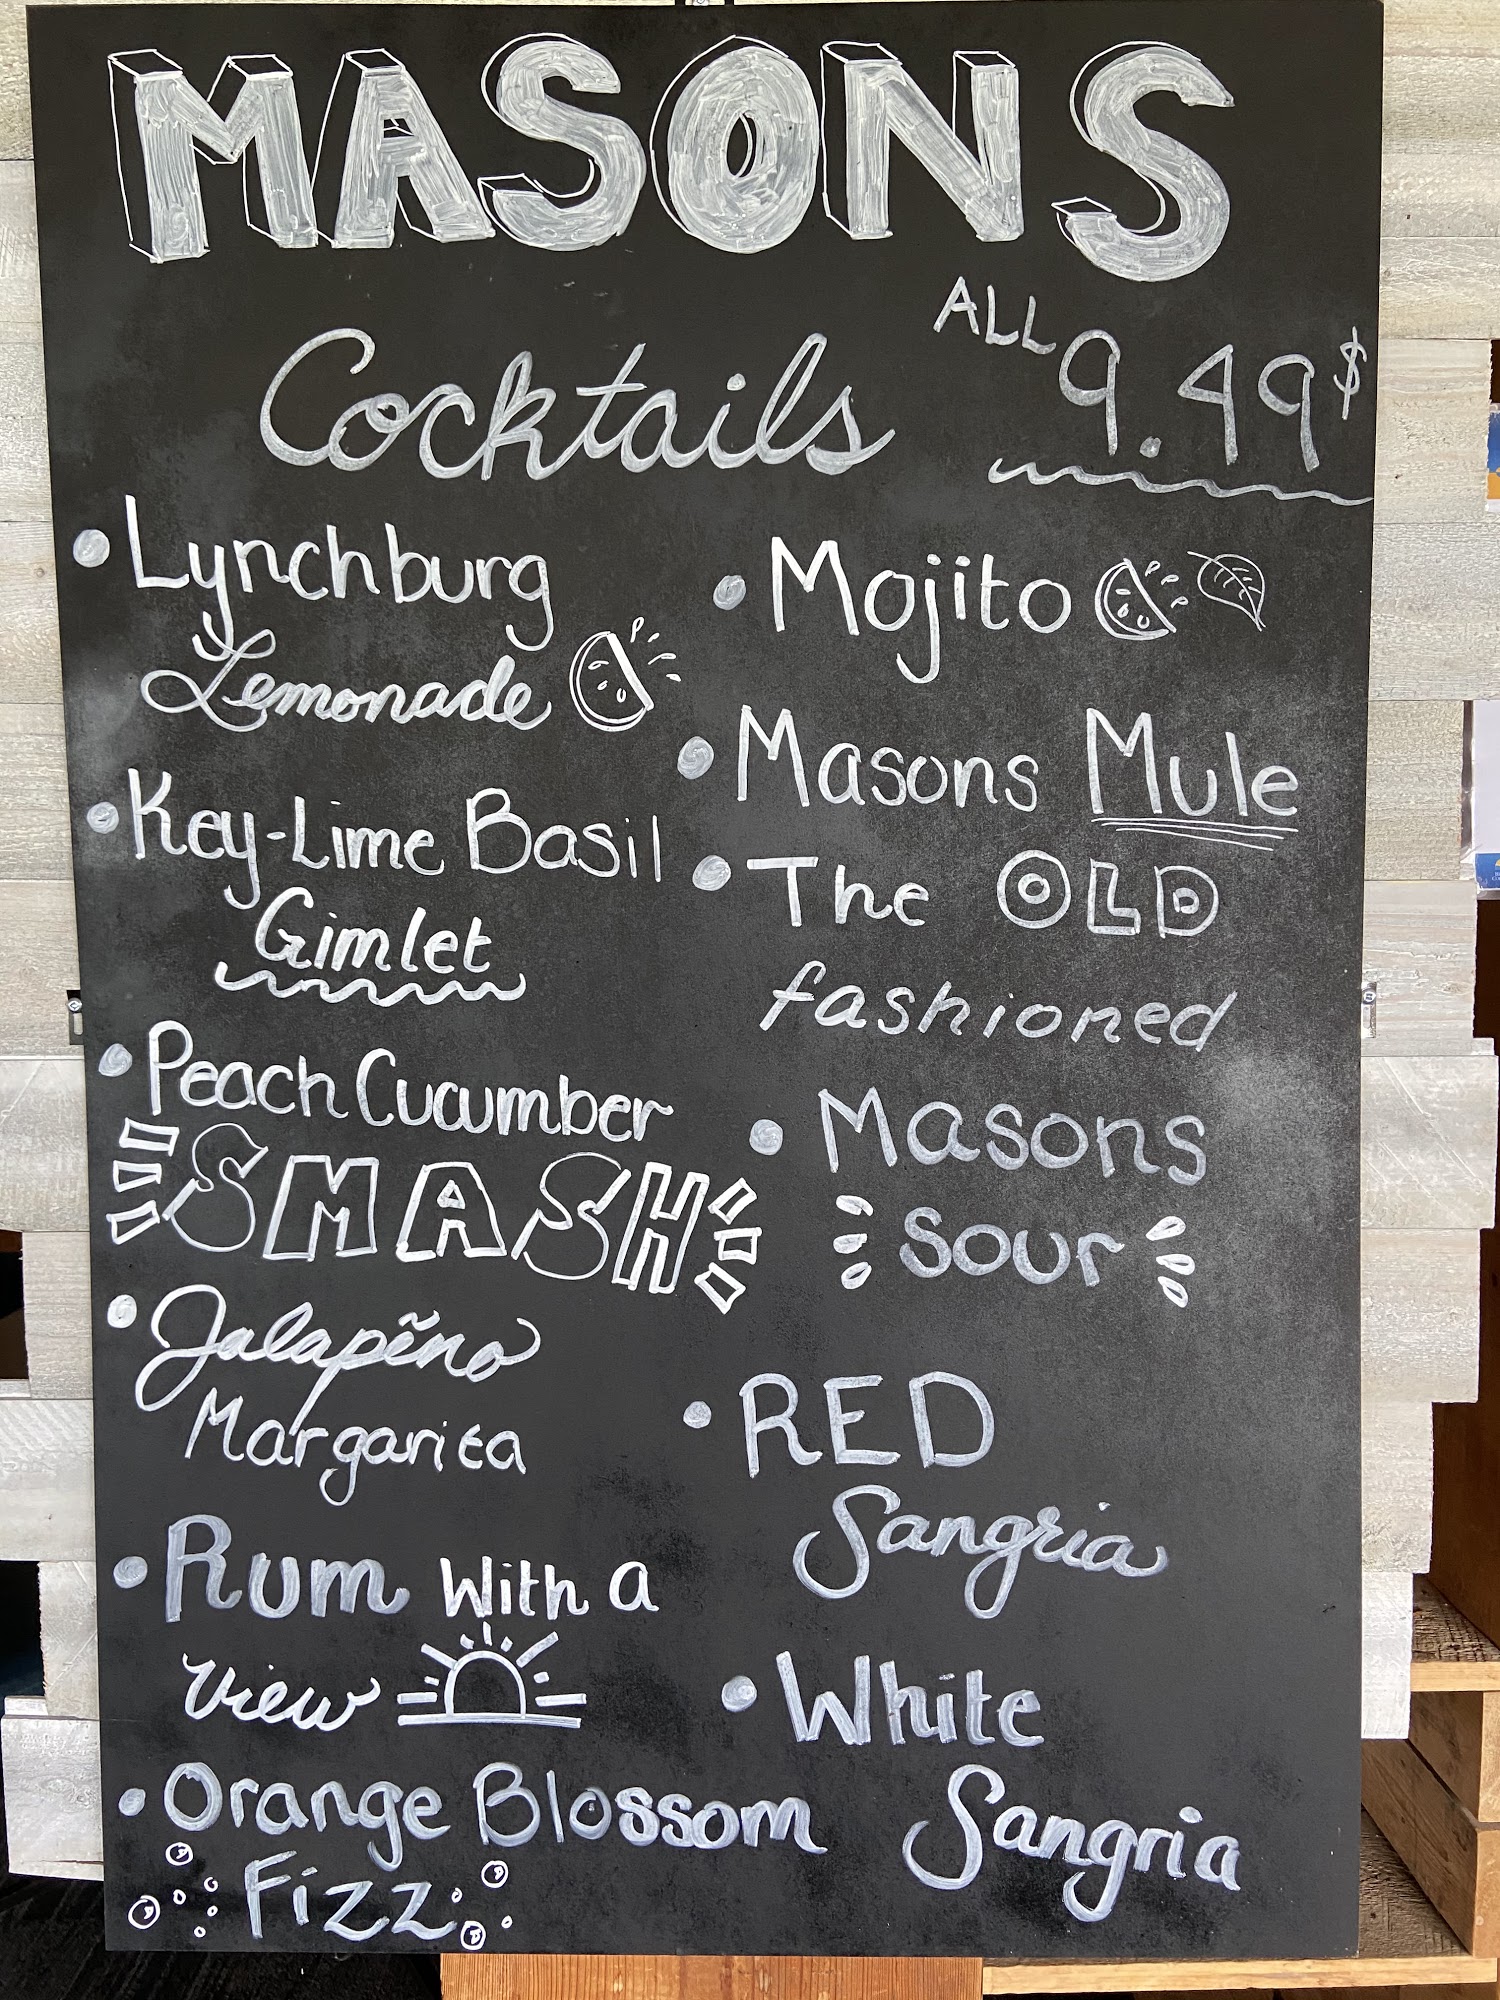 MASONS
Cocktails
ALL 9.49$
• Lynchburg
Lemonade
• Key-Lime Basil
Gimlet
• Peach Cucumber
SMASH
• Jalapẽno
Margarita
• Rum With a
View
• Orange Blossom
Fizz
• Mojito
• Masons Mule
• The OLD
fashioned
• Masons
Sour
• RED
Sangria
• White
Sangria